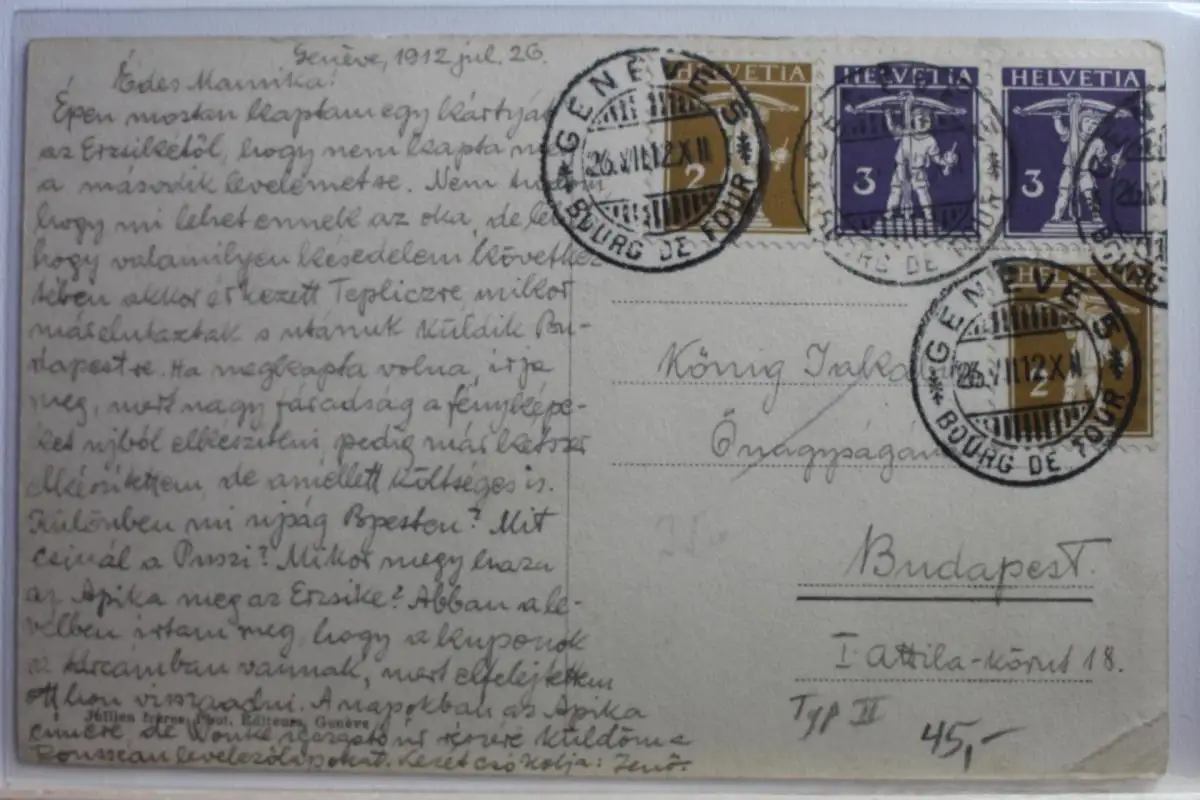 Genève, 1912 jul. 26.
Édes Mamika!
Épen mostan kaptam egy kártyát
az Erzsikétől, hogy nem kapta m
a második levelemet se. Nem tudom
hogy mi lehet ennek az oka, de le
hogy valamilyen késedelem követke
tében akkor érkezett Tepliczre, mikor
már elutaztak s utánuk küldik Bu-
dapestre. Ha megkapta volna, írja
meg, mert nagy fáradság a fényképe-
ket ujból elkészíteni, pedig már kétszer
elkészítettem, de amellett költséges is.
Különben mi ujság Bpesten? Mit
csinál a Puszi? Mikor megy haza
az Apika meg az Erzsike? Abban a le-
vélben írtam meg, hogy a kuponok
a tárcámban vannak, mert elfelejtettem
otthon visszaadni. A napokban az Apika
címére, de igazgató úr részére küldöm a
Rousseau levelezőlapokat. Kezét csókolja: Jenő.
Jullien frères, Phot. Editeurs, Genève
HELVETIA
2
HELVETIA
3
HELVETIA
3
HELVETIA
2
GENÈVE 5
26.VII.12.XII
BOURG DE FOUR
GENÈVE 5
BOURG DE FOUR
GENÈVE 5
26.VII.12.XII
BOURG DE FOUR
König
Őnagyságának
Budapest.
I. Attila-körut 18.
Typ II
45,-